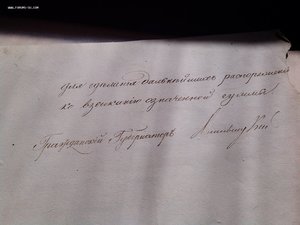 www.forums-su.com
для сделанія дальнейшихъ распоряженій
къ взысканію означенной суммы
Гражданскій Губернаторъ